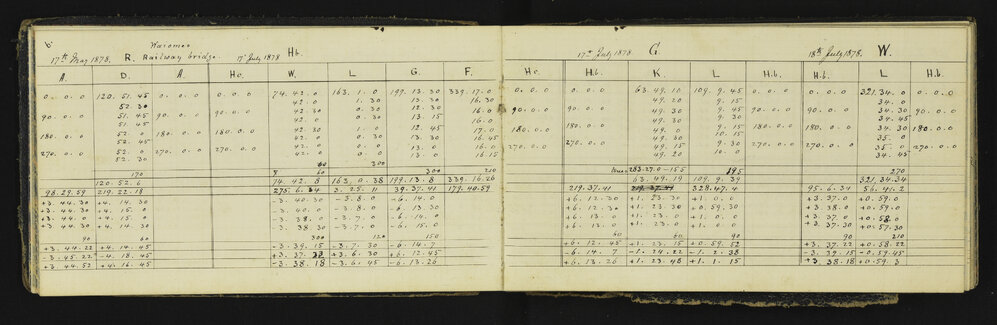 6
Waiomes
17th May 1878. R. Railway bridge. 17th July 1878 Hb.
A. D. A. Ho. W. L G. F.
0. 0. 0 120. 51. 45 0. 0. 0 0. 0. 0 74. 42. 0 163. 1. 0 199. 13. 30 339. 17. 0
52. 30 42. 0 1. 30 13. 30 16. 30
90. 0. 0 51. 45 90. 0. 0 90. 0. 0 42. 0 0. 30 12. 30 16. 0
51. 45 42. 0 1. 0 13. 15 16. 0
180. 0. 0 52. 0 180. 0. 0 180. 0. 0 42. 30 1. 0 12. 45 17. 0
52. 0 42. 15 0. 30 13. 30 16. 45
270. 0. 0 52. 0 270. 0. 0 270. 0. 0 42. 0 0. 30 13. 0 16. 0
52. 30 42. 0 0. 0 13. 0 16. 15
170 60 300 300 210
120. 52. 6 74. 42. 8 163. 0. 38 199. 13. 8 339. 16. 26
98. 29. 59 219. 22. 18 275. 6. 34 3. 25. 11 39. 37. 41 179. 40. 59
+3. 44. 30 +4. 14. 30 -3. 40. 30 -3. 8. 0 -6. 14. 0
+3. 44. 30 +4. 15. 0 -3. 40. 0 -3. 8. 0 -6. 13. 30
+3. 44. 0 +4. 15. 0 -3. 38. 0 -3. 7. 0 -6. 14. 0
+3. 44. 30 +4. 14. 30 -3. 38. 30 -3. 7. 0 -6. 15. 0
90 60 300 120 150
+3. 44. 22 +4. 14. 45 -3. 39. 15 -3. 7. 30 -6. 14. 7
-3. 45. 22 -4. 18. 45 +3. 37. 23 +3. 6. 30 +6. 12. 45
+3. 44. 52 +4. 16. 45 -3. 38. 18 -3. 6. 45 -6. 13. 26
17th July 1878. G. 18th July 1878. W.
Ho. H.b. K. L H.b. H.b. L H.b.
0. 0. 0 0. 0. 0 63. 49. 10 109. 9. 45 0. 0. 0 0. 0. 0 321. 34. 0 0. 0. 0
49. 20 9. 15 34. 0
90. 0. 0 90. 0. 0 49. 15 9. 45 90. 0. 0 90. 0. 0 34. 0 90. 0. 0
49. 30 9. 45 34. 0
180. 0. 0 180. 0. 0 49. 30 9. 15 180. 0. 0 180. 0. 0 34. 30 180. 0. 0
49. 0 10. 15 35. 0
270. 0. 0 270. 0. 0 49. 15 9. 30 270. 0. 0 270. 0. 0 35. 0 270. 0. 0
49. 20 10. 0 34. 45
283. 27. 0 - 155 195 270
63. 49. 19 109. 9. 39 321. 34. 34
219. 37. 41 219. 37. 41 328. 47. 4 95. 6. 34 56. 41. 2
+6. 12. 30 +1. 23. 30 +1. 0. 0 +3. 37. 0 +0. 59. 0
+6. 12. 30 +1. 23. 0 +0. 59. 30 +3. 37. 0 +0. 59. 0
+6. 13. 0 +1. 23. 0 +1. 0. 0 +3. 37. 0 +0. 58. 0
+6. 13. 0 +1. 23. 30 +1. 0. 0 +3. 37. 30 +0. 57. 30
60 60 90 90 210
+6. 12. 45 +1. 23. 15 +0. 59. 52 +3. 37. 22 +0. 58. 22
-6. 14. 7 -1. 24. 22 -1. 2. 38 -3. 39. 15 -0. 59. 45
+6. 13. 26 +1. 23. 48 +1. 1. 15 +3. 38. 18 +0. 59. 3